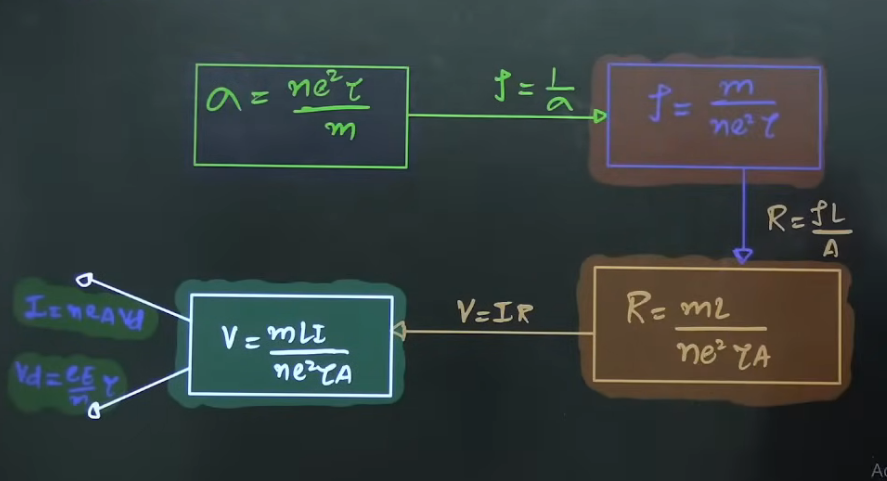 σ = ne²τ / m
ρ = 1/σ
ρ = m / ne²τ
R = ρL / A
R = mL / ne²τA
V = IR
V = mLI / ne²τA
I = neAVd
Vd = eE/m τ